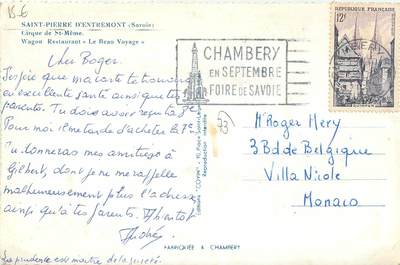 15-6
SAINT-PIERRE D'ENTREMONT (Savoie)
Cirque de St-Même.
Wagon Restaurant « Le Beau Voyage »
Cher Roger.
J'espère que ma carte te trouvera
en excellente santé ainsi que tes
parents. Tu dois avoir reçu
Pour moi il me tarde d'acheter le 7e.
Tu donneras mes amitiés à
Gilbert, dont je ne me rappelle
malheureusement plus l'adresse
ainsi qu'à tes parents. A bientôt
André
La prudence est maître de la sureté.
CHAMBERY
EN SEPTEMBRE
FOIRE DE SAVOIE
REPUBLIQUE FRANÇAISE
12F
Editions "COMIN"
Reproduction interdite
53
Mr Roger Mery
3 Bd de Belgique
Villa Nicole
Monaco
FABRIQUÉE A CHAMBERY